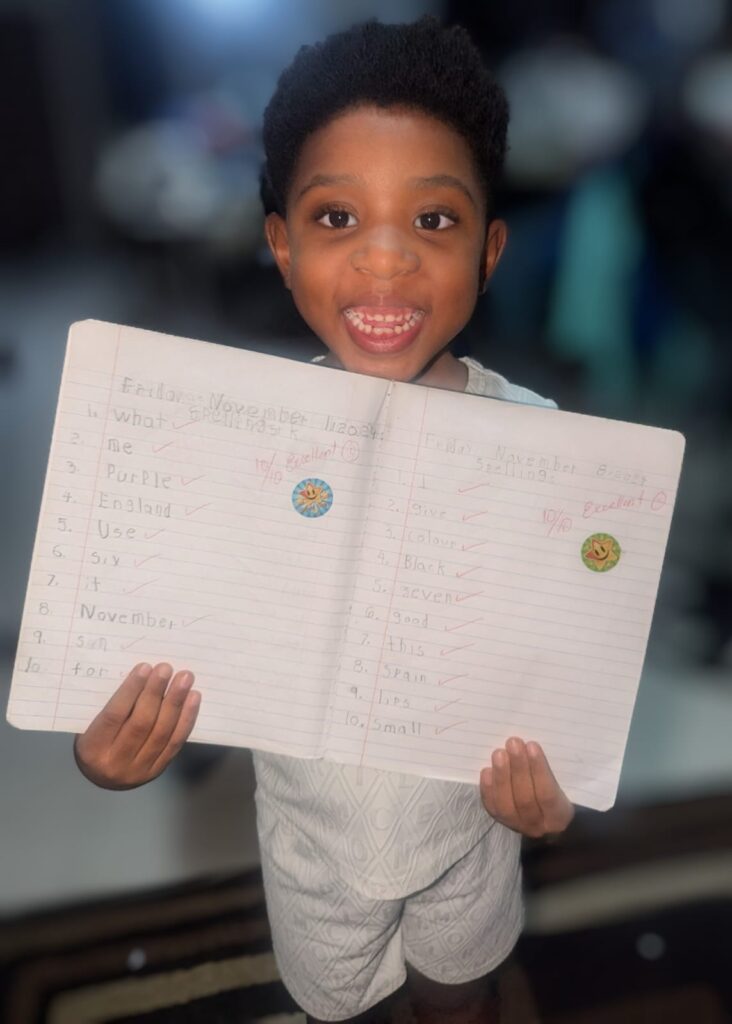 Friday November 1, 2024
Spellings
1. what
2. me
10/10 Excellent
3. Purple
4. England
5. Use
6. six
7. it
8. November
9. sin
10. for
Friday November 8, 2024
Spelling
1. I
2. give
10/10 Excellent
3. colour
4. Black
5. seven
6. good
7. this
8. Spain
9. lies
10. small